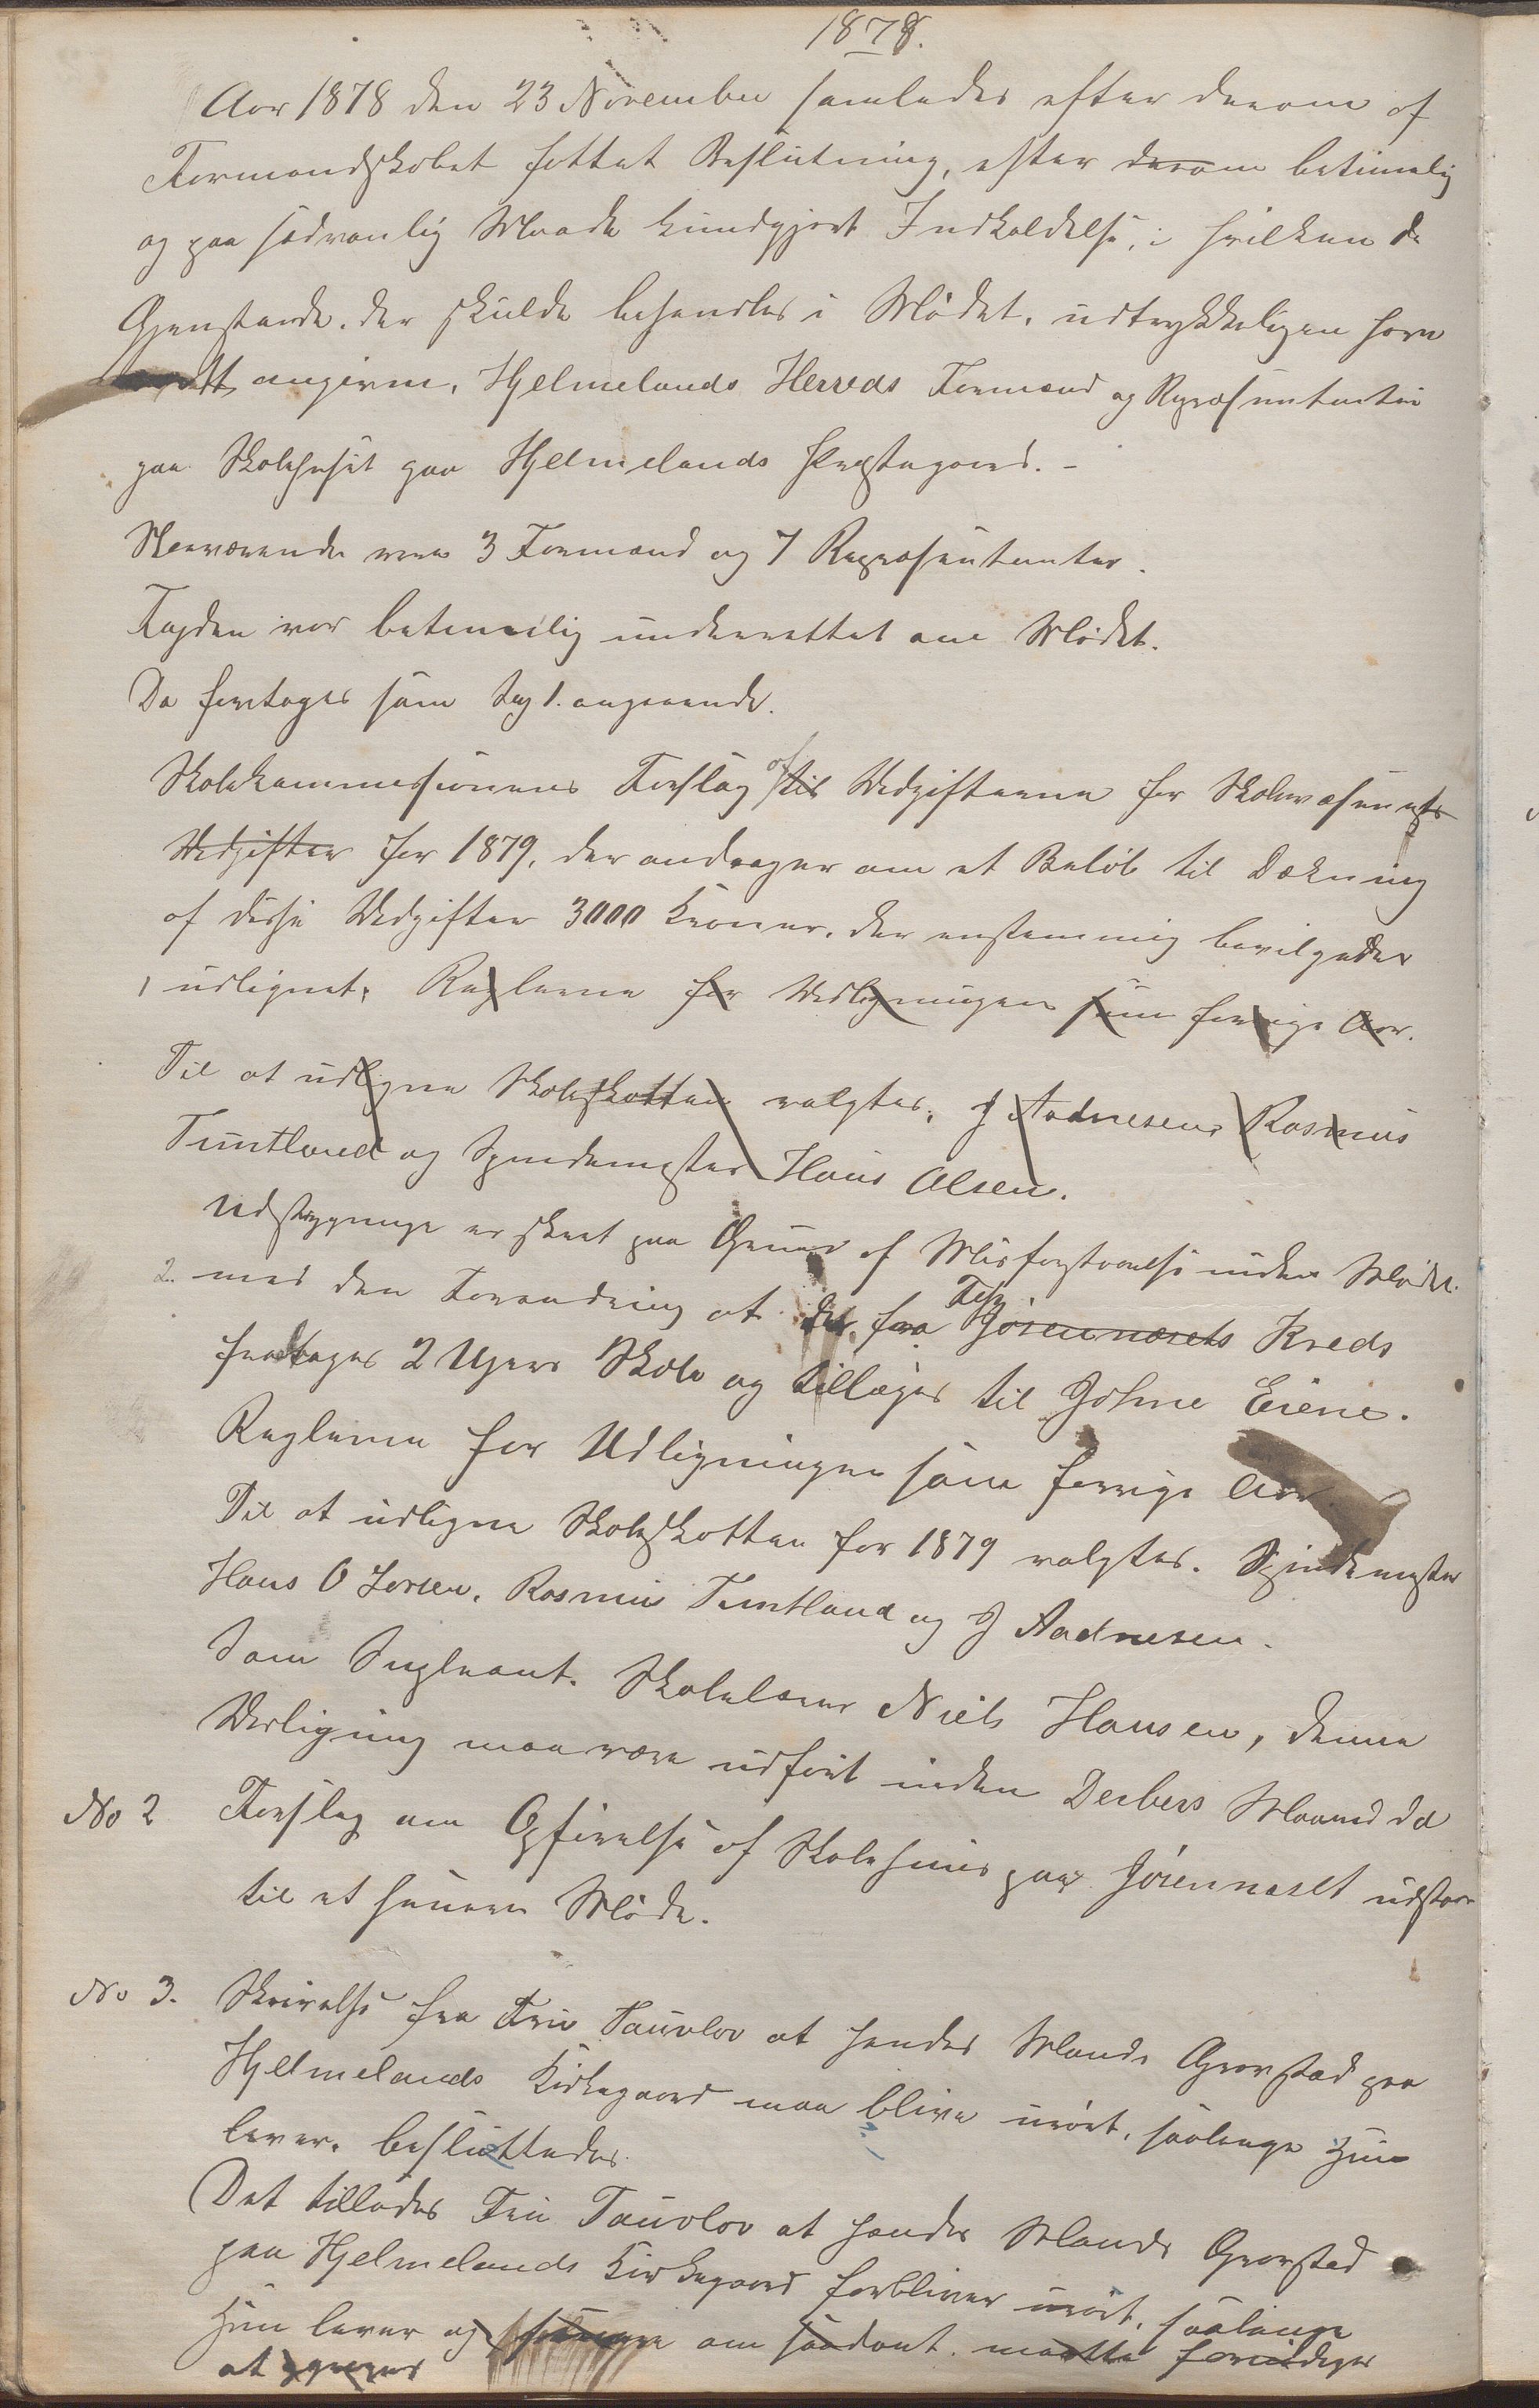 1878.
Aar 1878 den 23 November samledes efter derom af
Formandskabet fattet Beslutning, efter derom betimelig
og paa sædvanlig Maade kundgjort Indkaldelse, i hvilken de
Gjenstande, der skulde behandles i Mødet, udtrykkeligen vare
angivne, Hjelmelands Herreds Formænd og Repræsentanter
paa Skolehuset paa Hjelmelands Præstegaard. -
Nærværende vare 3 Formænd og 7 Repræsentanter.
Fogden var betimelig underrettet om Mødet.
Da foretoges som Sag 1. angaaende.
Skolekommissionens Forslag af til Udgifterne for Skolevæsenets
Udgifter for 1879, der andrager om et Beløb til Dækning
af disse Udgifter 3000 Kroner, der enstemmig bevilgedes
1 udlignet, Reglerne for Udligningen som forrige Aar.
Til at udligne Skoleskatten valgtes, J Aadnesen, Rasmus
Tuntland og Spindemester Hans Olsen.
Udstrygninge er skeet paa Grund af Misforstaaelse inden Mødet.
2. med den Forandring at det fra Jøsennæsets Kreds
fratages 2 Ugers Skole og tillæges til Eiene.
Reglerne for Udligningen som forrige Aar.
Til at udligne Skoleskatten for 1879 valgtes. Spindemester
Hans O Larsen, Rasmus Tuntland og J Aadnesen.
Som Supleant. Skolelærer Niels Hansen, denne
Udligning maa være udført inden Decbers Maaned
No 2 Forslag om Opførelse af Skolehuus paa Jøsennæset udstaar
til et senere Møde.
No 3. Skrivelse fra Fru Taurlov at hendes Mands Gravsted paa
Hjelmelands Kirkegaard maa blive urørt, saalænge Hun
lever. besluttedes.
Det tillades Fru Taurlov at hendes Mands Gravsted
paa Hjelmelands Kirkegaard forbliver urørt, saalænge
Hun lever og om saadant maatte
at